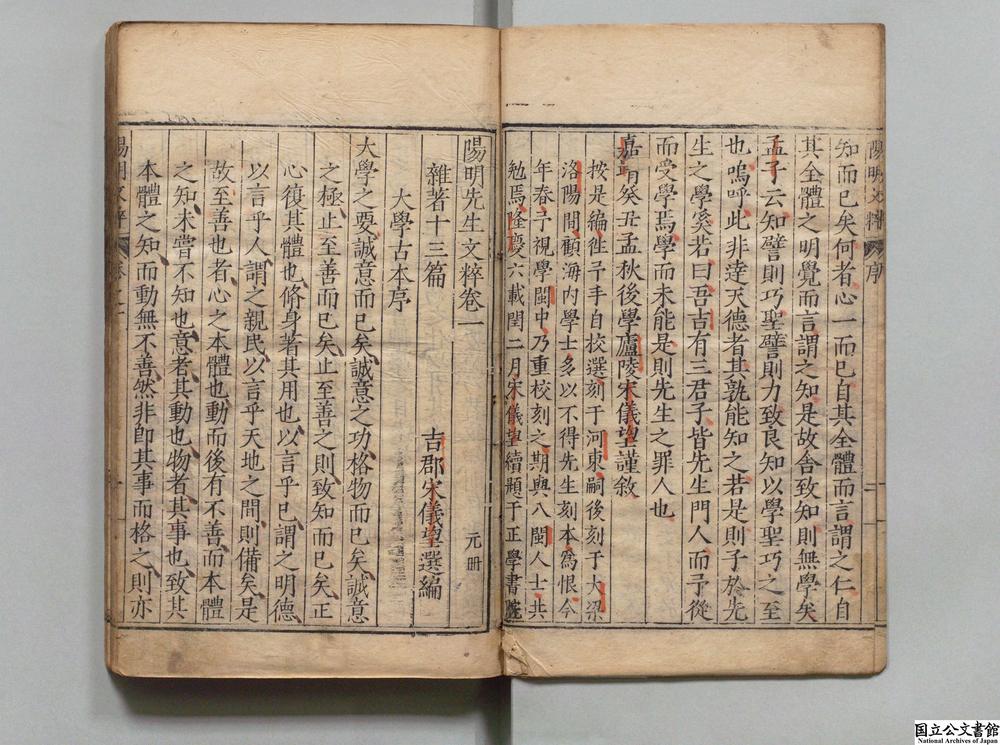 陽明文粹 序 二
知而已矣何者心一而已自其全體而言謂之仁自
其全體之明覺而言謂之知是故舍致知則無學矣
孟子云知譬則巧聖譬則力致良知以學聖巧之至
也嗚呼此非達天德者其孰能知之若是則予於先
生之學奚若曰吾吉有三君子皆先生門人而予從
而受學焉學而未能是則先生之罪人也
嘉靖癸丑孟秋後學廬陵宋儀望謹敘
按是編徃予手自校選刻于河東嗣後刻于大梁
洛陽間顧海内學士多以不得先生刻本為恨今
年春予視學閩中乃重校刻之期與八閩人士共
勉焉隆慶六載閏二月宋儀望續題于正學書院
陽明先生文粹卷一 元册
雜著十三篇 吉郡宋儀望選編
大學古本序
大學之要誠意而已矣誠意之功格物而已矣誠意
之極止至善而已矣止至善之則致知而已矣正
心復其體也脩身著其用也以言乎已謂之明德
以言乎人謂之親民以言乎天地之間則備矣是
故至善也者心之本體也動而後有不善而本體
之知未嘗不知也意者其動也物者其事也致其
本體之知而動無不善然非卽其事而格之則亦
陽明文粹 卷之一 一
国立公文書館
National Archives of Japan